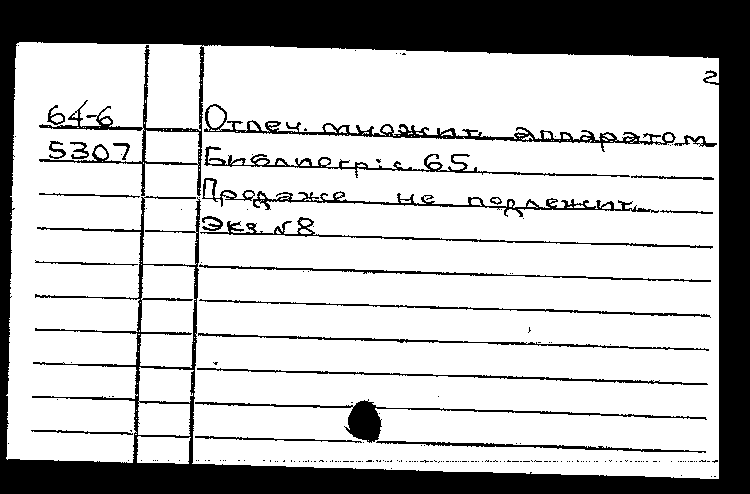 2
64-6 Отпеч. множит. аппаратом
5307 Библиогр: с. 65.
Продаже не подлежит.
Экз. №8